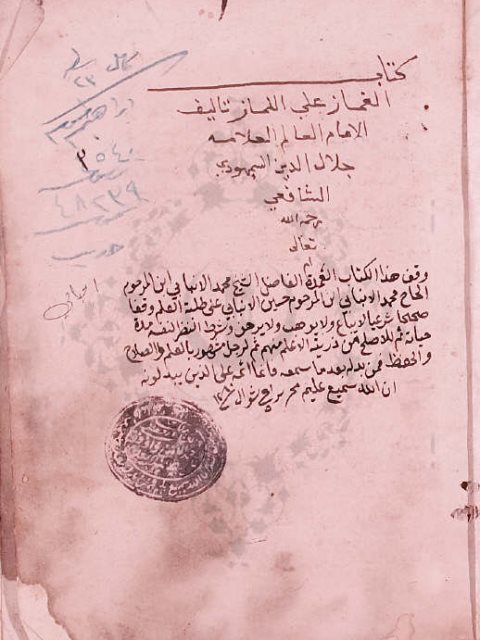 كتاب
الغماز على اللماز تاليف
الامام العالم العلامه
جلال الدين السمهودي
الشافعي
رحمه الله
تعالى
وقف هذا الكتاب العمدة الفاضل الشيخ محمد الانبابي ابن المرحوم
الحاج محمد الانبابي ابن المرحوم حسين الانبابي على طلبة العلم وقفا
صحيحا شرعيا لا يباع ولا يوهب ولا يرهن وشرط النظر لنفسه مدة
حياته ثم للاصلح من ذريته الاعلم منهم ثم لرجل مشهور بالعلم والصلاح
والحفظ فمن بدله بعدما سمعه فانما اثمه على الذين يبدلونه
ان الله سميع عليم تحريرا في شوال
٢٣
٥٤٠
٤٨٢٣٩
حديث
انبابي